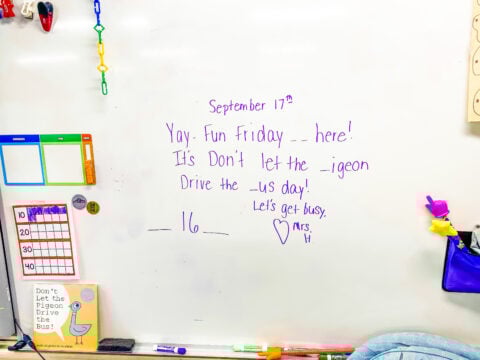 September 17th
Yay. Fun Friday _ _ here!
It's Don't let the _igeon
Drive the _us day!
Let's get busy.
♡ Mrs.
H
__ 16 __
10
20
30
40
Don't
Let the
Pigeon
Drive
the
Bus!